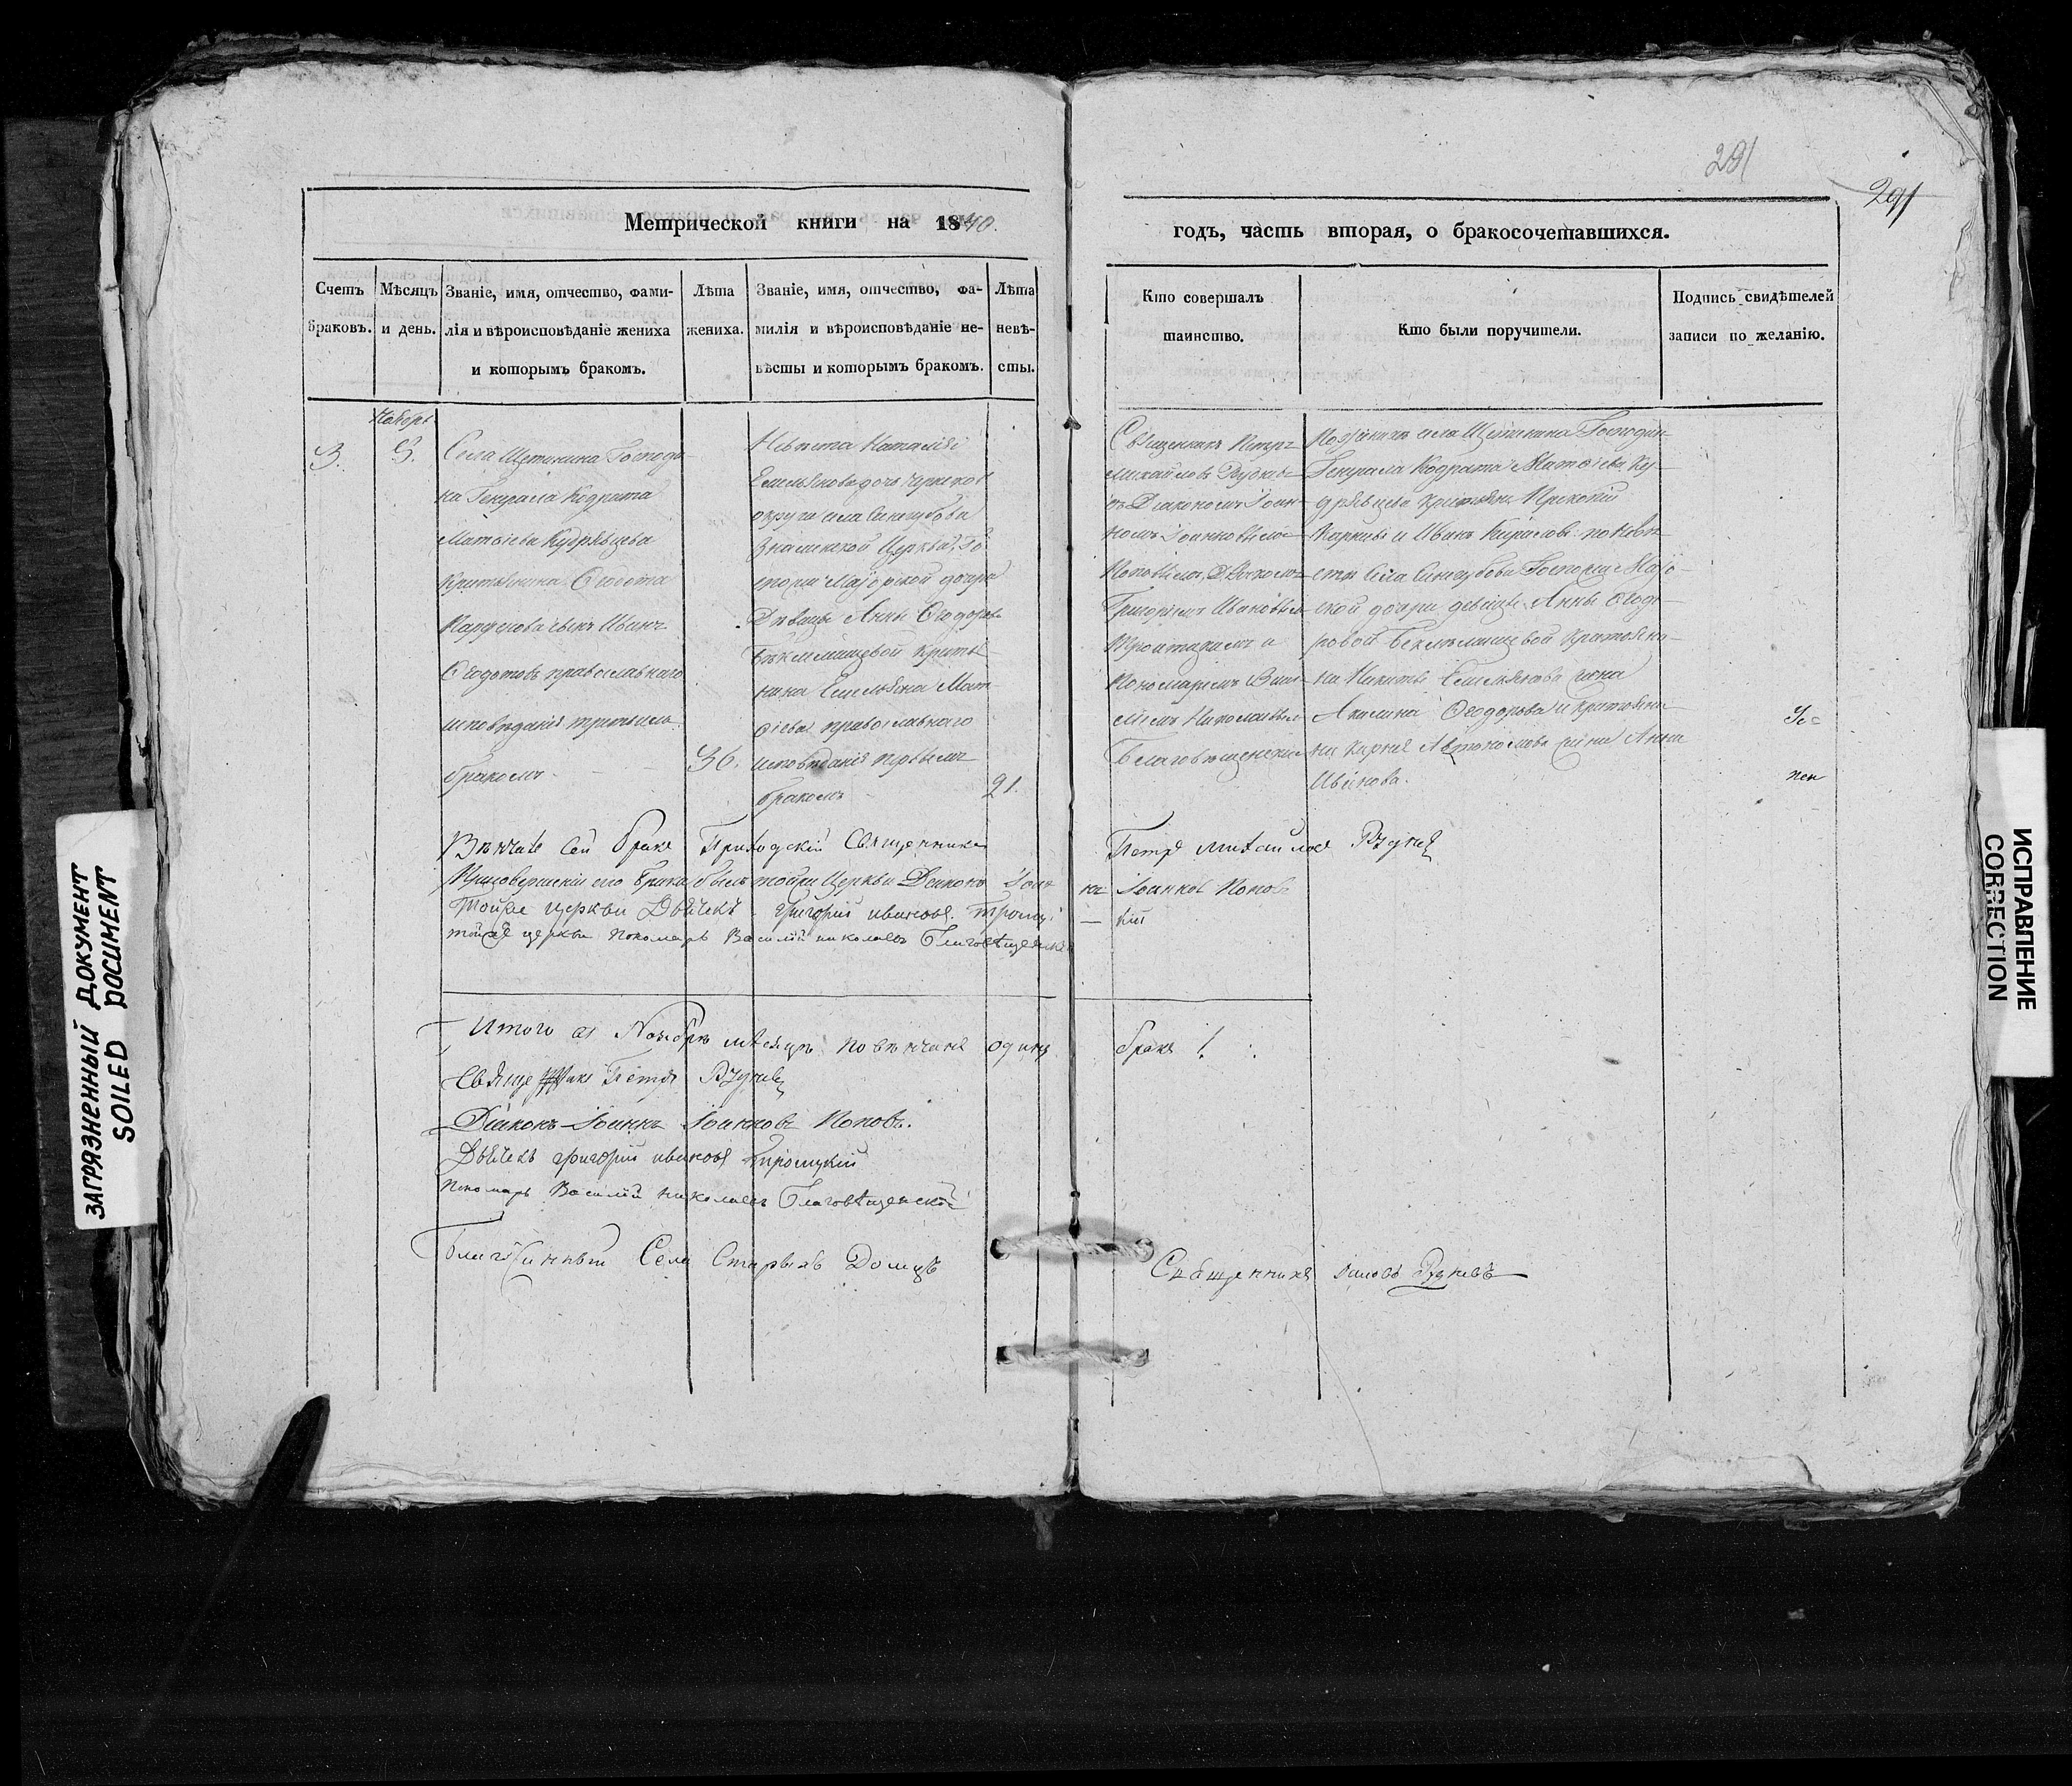 291
291
Метрической книги на 1840.
годъ, часть вторая, о бракосочетавшихся.
Счетъ браковъ.
Мѣсяцъ и день.
Званіе, имя, отчество, фами-
лія и вѣроисповѣданіе жениха
и которымъ бракомъ.
Лѣта жениха.
Званіе, имя, отчество, фа-
милія и вѣроисповѣданіе не-
вѣсты и которымъ бракомъ.
Лѣта невѣ-
сты.
Кто совершалъ
таинство.
Кто были поручители.
Подпись свидѣтелей
записи по желанію.
3.
Села Щетинина Господи-
на Генерала Кодрата
Матвіева Кудрявцева
Ѳедота
сынъ Иванъ
Ѳедотовъ православнаго
исповѣданія третьимъ
бракомъ
36.
Невѣста Наталія
Емельянова дочь
округи села
Знаменской Церкви, Го
Маіорской дочери
Дѣвицы Анны Ѳеодоров
Бѣклемишевой кресть
нина Емельяна Мат
ѳіева православнаго
исповѣданія первымъ
бракомъ
21.
Священникъ Петръ
Михайловъ Рудневъ
съ Діакономъ Іоан
номъ Іоанновымъ
Поповымъ, Дьячкомъ
Григоріемъ Ивановым
и
Пономаремъ Васи
ліемъ Николаевым
Благовѣщенским
По женихѣ села Щетинина Господин
Генерала Кодрата Матвіева Ку-
дрявцева крестьяне Прокопій
и Иванъ Кириловъ: по невѣ
стѣ Села Госпожи Маіо-
рской дочери девицы Анны Ѳеодо-
ровой Беклемишевой крестьяни-
на Никиты Емельянова жена
Акилина Ѳеодорова и крестьяни-
на Автономова жена Анна
Иванова.
Вѣнчалъ сей бракъ Приходскій Священникъ Петръ Михайловъ Рудневъ
При совершеніи его брака былъ тойже Церкви Діаконъ Іоаннъ Іоанновъ Поповъ
Тойже церкви Дьячекъ Григорій Ивановъ Троиц — кій
тойже церкви пономарь Василій Николаевъ Благовѣщенскій
Итого въ Ноябрѣ мѣсяцѣ повѣнчанъ одинъ бракъ 1.
Священникъ Петръ Рудневъ
Діаконъ Іоаннъ Іоанновъ Поповъ.
Дьячекъ Григорій Ивановъ Троицкій
Пономарь Василій Николаевъ Благовѣщенской
Благочинный Села Старыхъ Долецъ Священникъ Рудневъ
ЗАГРЯЗНЕННЫЙ ДОКУМЕНТ
SOILED DOCUMENT
ИСПРАВЛЕНИЕ
CORRECTION